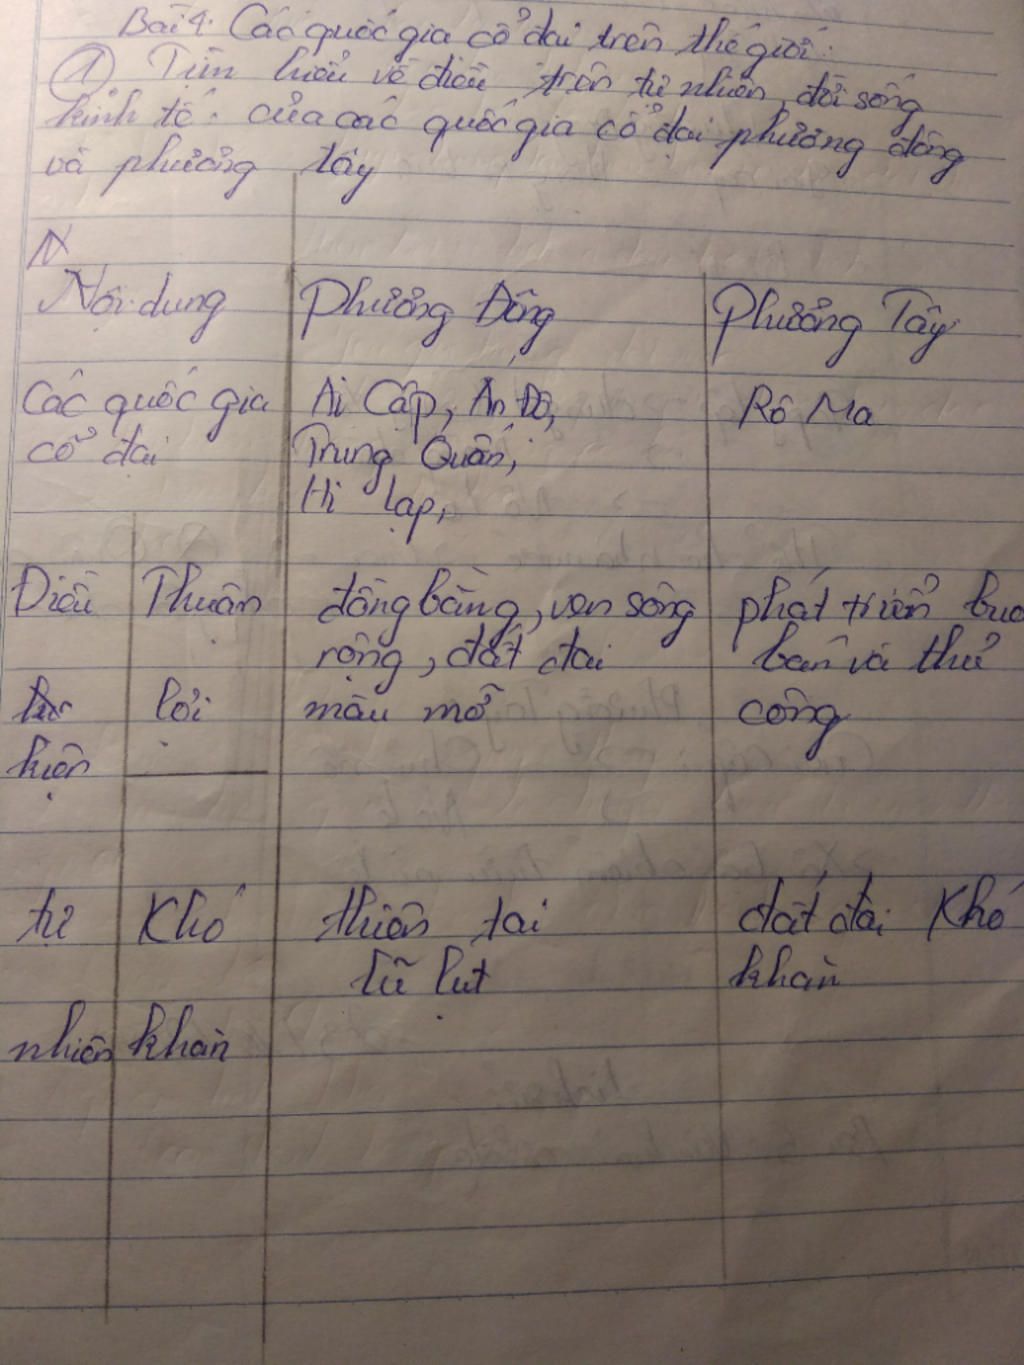 Bài 4: Các quốc gia cổ đại trên thế giới.
① Tìm hiểu về điều trên tự nhiên, đời sống
kinh tế. của các quốc gia cổ đại phương đông
và phương tây
N
Nội dung
Phương Đông
Phương Tây
Các quốc gia
cổ đại
Ai Cập, Ấn Độ,
Trung Quốn,
Hi lạp,
Rô Ma
Điều
kiện
tự
nhiên
Thuận
lợi
đồng bằng, ven sông
rộng, đất đai
màu mỡ
phát triển buo
bán và thủ
công
Khó
khăn
thiên tai
lũ lụt
đất đai Khó
khăn